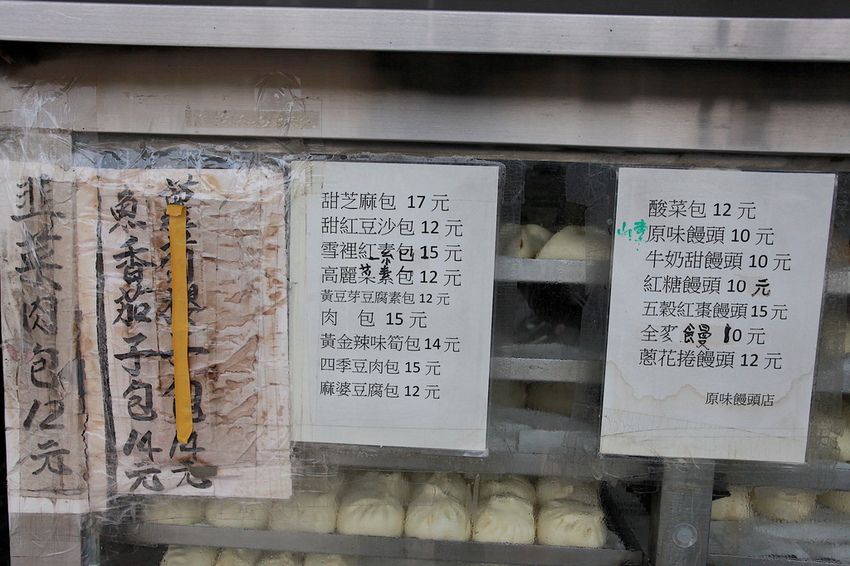 韭菜肉包12元
魚香茄子包14元
包14元
甜芝麻包 17 元
甜紅豆沙包 12 元
雪裡紅素包 15 元
高麗菜素包 12 元
黃豆芽豆腐素包 12 元
肉 包 15 元
黃金辣味筍包 14 元
四季豆肉包 15 元
麻婆豆腐包 12 元
酸菜包 12 元
原味饅頭 10 元
牛奶甜饅頭 10 元
紅糖饅頭 10 元
五穀紅棗饅頭 15 元
全麥饅 10 元
蔥花捲饅頭 12 元
原味饅頭店